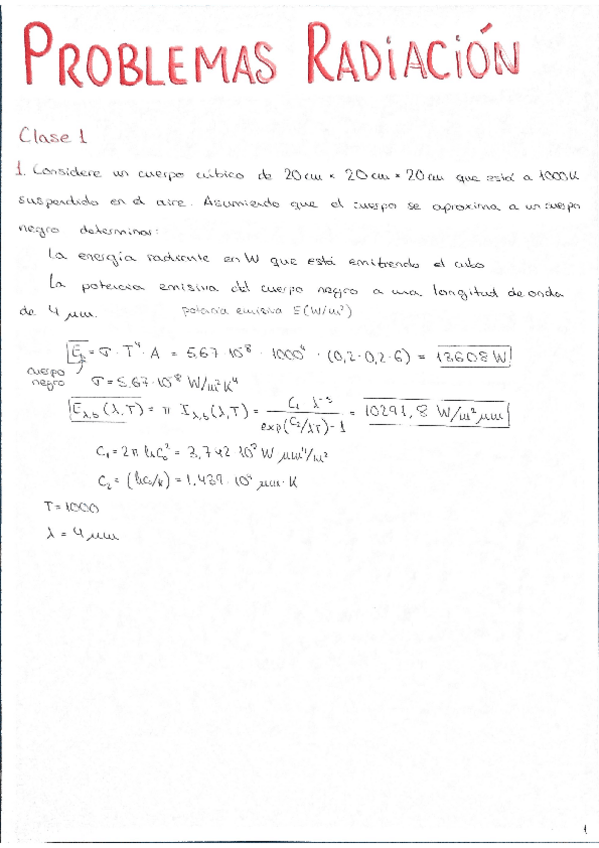 PROBLEMAS RADIACIÓN
Clase 1
1. Considere un cuerpo cúbico de 20 cm × 20 cm × 20 cm que está a 1000 K
suspendido en el aire. Asumiendo que el cuerpo se aproxima a un cuerpo
negro determinar:
La energía radiante en W que está emitiendo el cubo
La potencia emisiva del cuerpo negro a una longitud de onda
de 4 μm. potencia emisiva E(W/m²)
E_b = σ · T⁴ · A = 5,67 10⁻⁸ · 1000⁴ · (0,2 · 0,2 · 6) = 13608 W
cuerpo negro
σ = 5,67 · 10⁻⁸ W/m²K⁴
E_λ,b (λ,T) = π I_λ,b (λ,T) = C₁ λ⁻⁵ / exp(C₂/λT) - 1 = 10291,8 W/m² μm
C₁ = 2π h C₀² = 3,742 · 10⁸ W μm⁴/m²
C₂ = (h C₀/k) = 1.439 · 10⁴ μm · K
T = 1000
λ = 4 μm
1